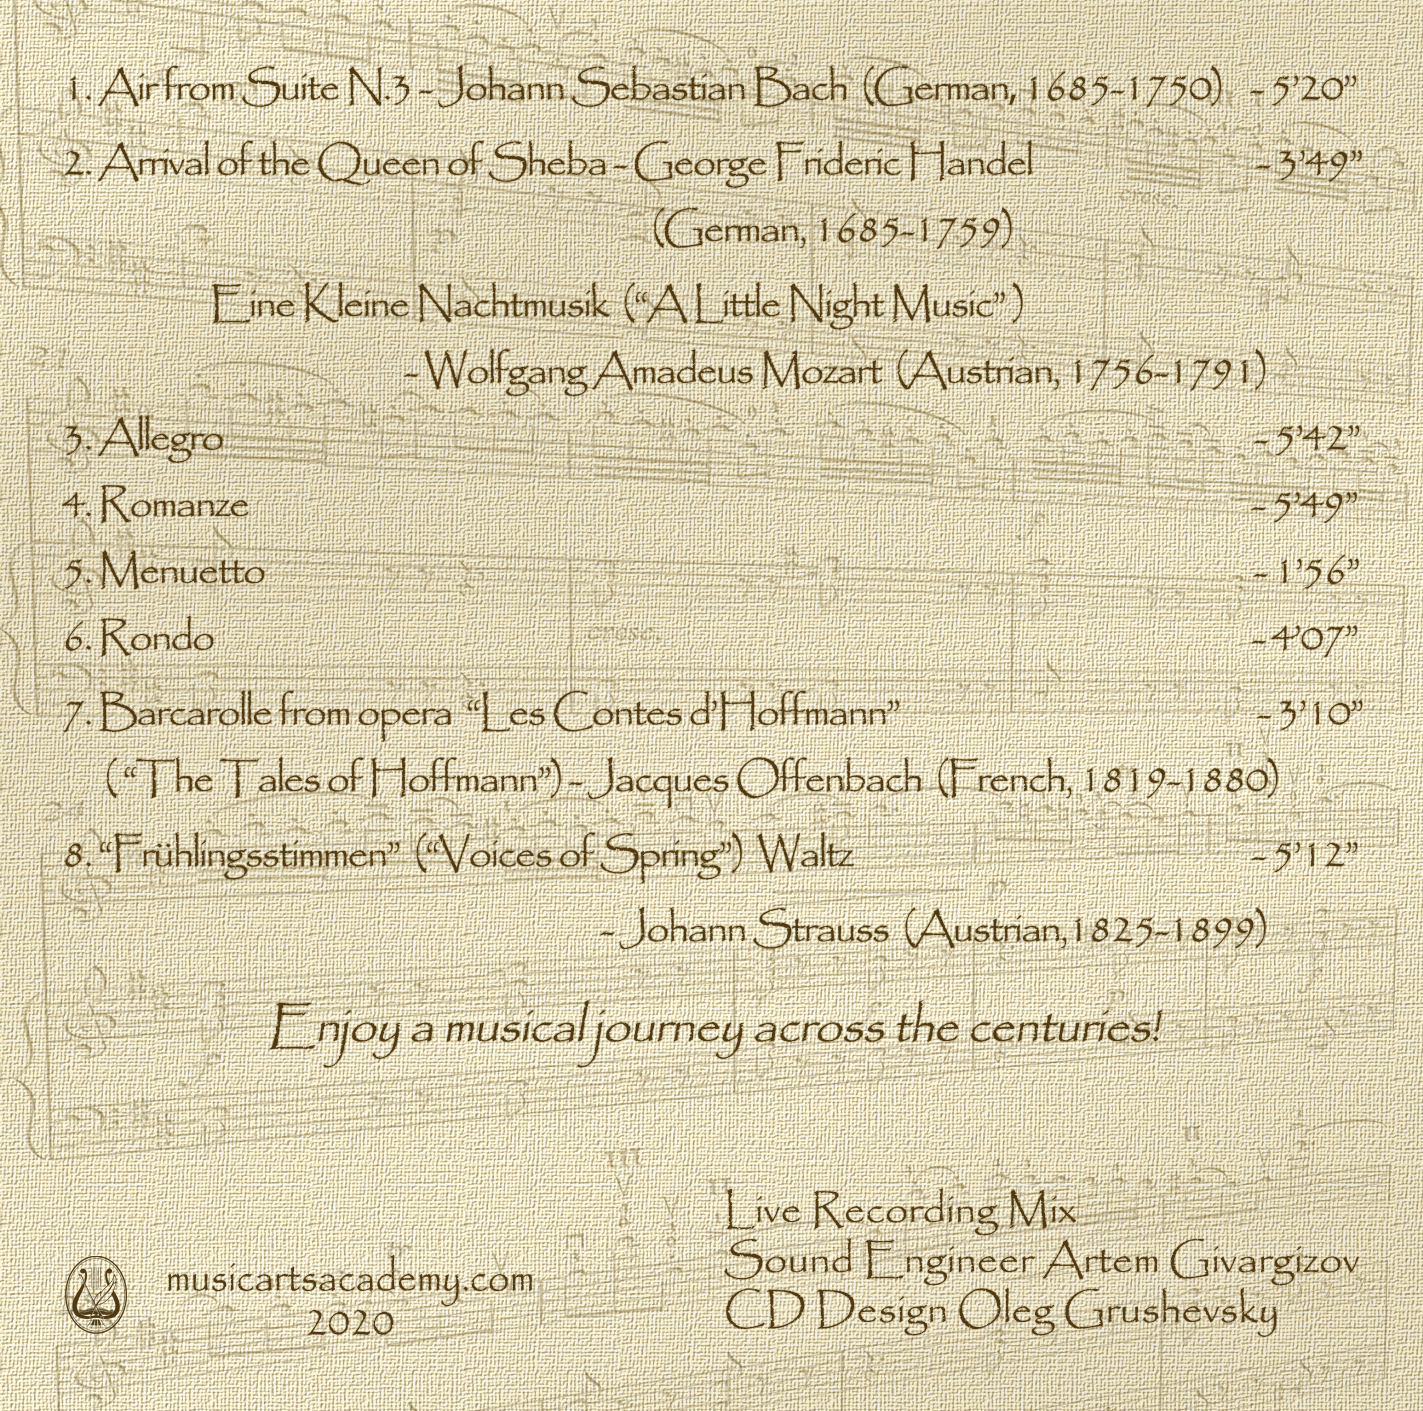 1. Air from Suite N.3 - Johann Sebastian Bach (German, 1685-1750) - 5’20”
2. Arrival of the Queen of Sheba - George Frideric Handel - 3’49”
(German, 1685-1759)
Eine Kleine Nachtmusik (“A Little Night Music” )
- Wolfgang Amadeus Mozart (Austrian, 1756-1791)
3. Allegro - 5’42”
4. Romanze - 5’49”
5. Menuetto - 1’56”
6. Rondo - 4’07”
7. Barcarolle from opera “Les Contes d’Hoffmann” - 3’10”
( “The Tales of Hoffmann”) - Jacques Offenbach (French, 1819-1880)
8. “Frühlingsstimmen” (“Voices of Spring”) Waltz - 5’12”
- Johann Strauss (Austrian,1825-1899)
Enjoy a musical journey across the centuries!
Live Recording Mix
Sound Engineer Artem Givargizov
CD Design Oleg Grushevsky
musicartsacademy.com
2020
cresc.
cresc.